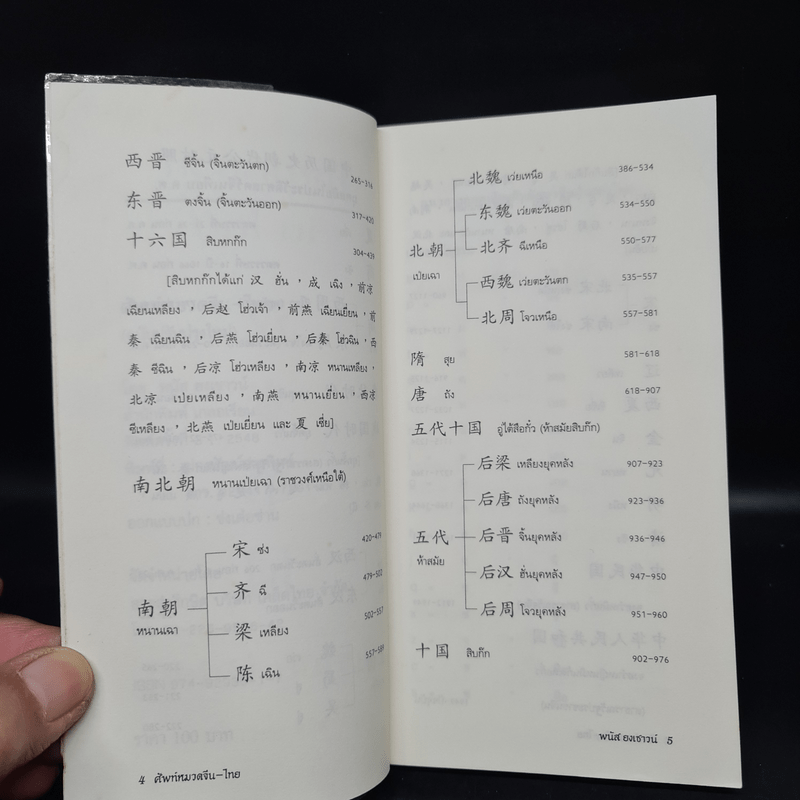 西晋 ซีจิ้น (จิ้นตะวันตก)
265-316
东晋 ตงจิ้น (จิ้นตะวันออก)
317-435
十六国 สิบหกก๊ก
304-439
[สิบหกก๊กได้แก่ 汉 ฮั่น , 成 เฉิง , 前凉
เฉียนเหลียง , 后赵 โฮ่วเจ้า , 前燕 เฉียนเยี่ยน , 前
秦 เฉียนฉิน , 后燕 โฮ่วเยี่ยน , 后秦 โฮ่วฉิน , 西
秦 ซีฉิน , 后凉 โฮ่วเหลียง , 南凉 หนานเหลียง ,
北凉 เป่ยเหลียง , 南燕 หนานเยี่ยน , 西凉
ซีเหลียง , 北燕 เป่ยเยี่ยน และ 夏 เซี่ย]
南北朝 หนานเป่ยเฉา (ราชวงศ์เหนือใต้)
420-479
宋 ซ่ง
479-502
齐 ฉี
502-557
梁 เหลียง
557-589
陈 เฉิน
南朝
หนานเฉา
4 ศัพท์หมวดจีน-ไทย
北魏 เว่ยเหนือ 386-534
东魏 เว่ยตะวันออก 534-550
北朝
เป่ยเฉา
北齐 ฉีเหนือ 550-577
西魏 เว่ยตะวันตก 535-557
北周 โจวเหนือ 557-581
隋 สุย 581-618
唐 ถัง 618-907
五代十国 อู่ไต้สือกั๋ว (ห้าสมัยสิบก๊ก)
后梁 เหลียงยุคหลัง 907-923
后唐 ถังยุคหลัง 923-936
五代
ห้าสมัย
后晋 จิ้นยุคหลัง 936-946
后汉 ฮั่นยุคหลัง 947-950
后周 โจวยุคหลัง 951-960
十国 สิบก๊ก 902-976
พนัส ยงเซาวน์ 5